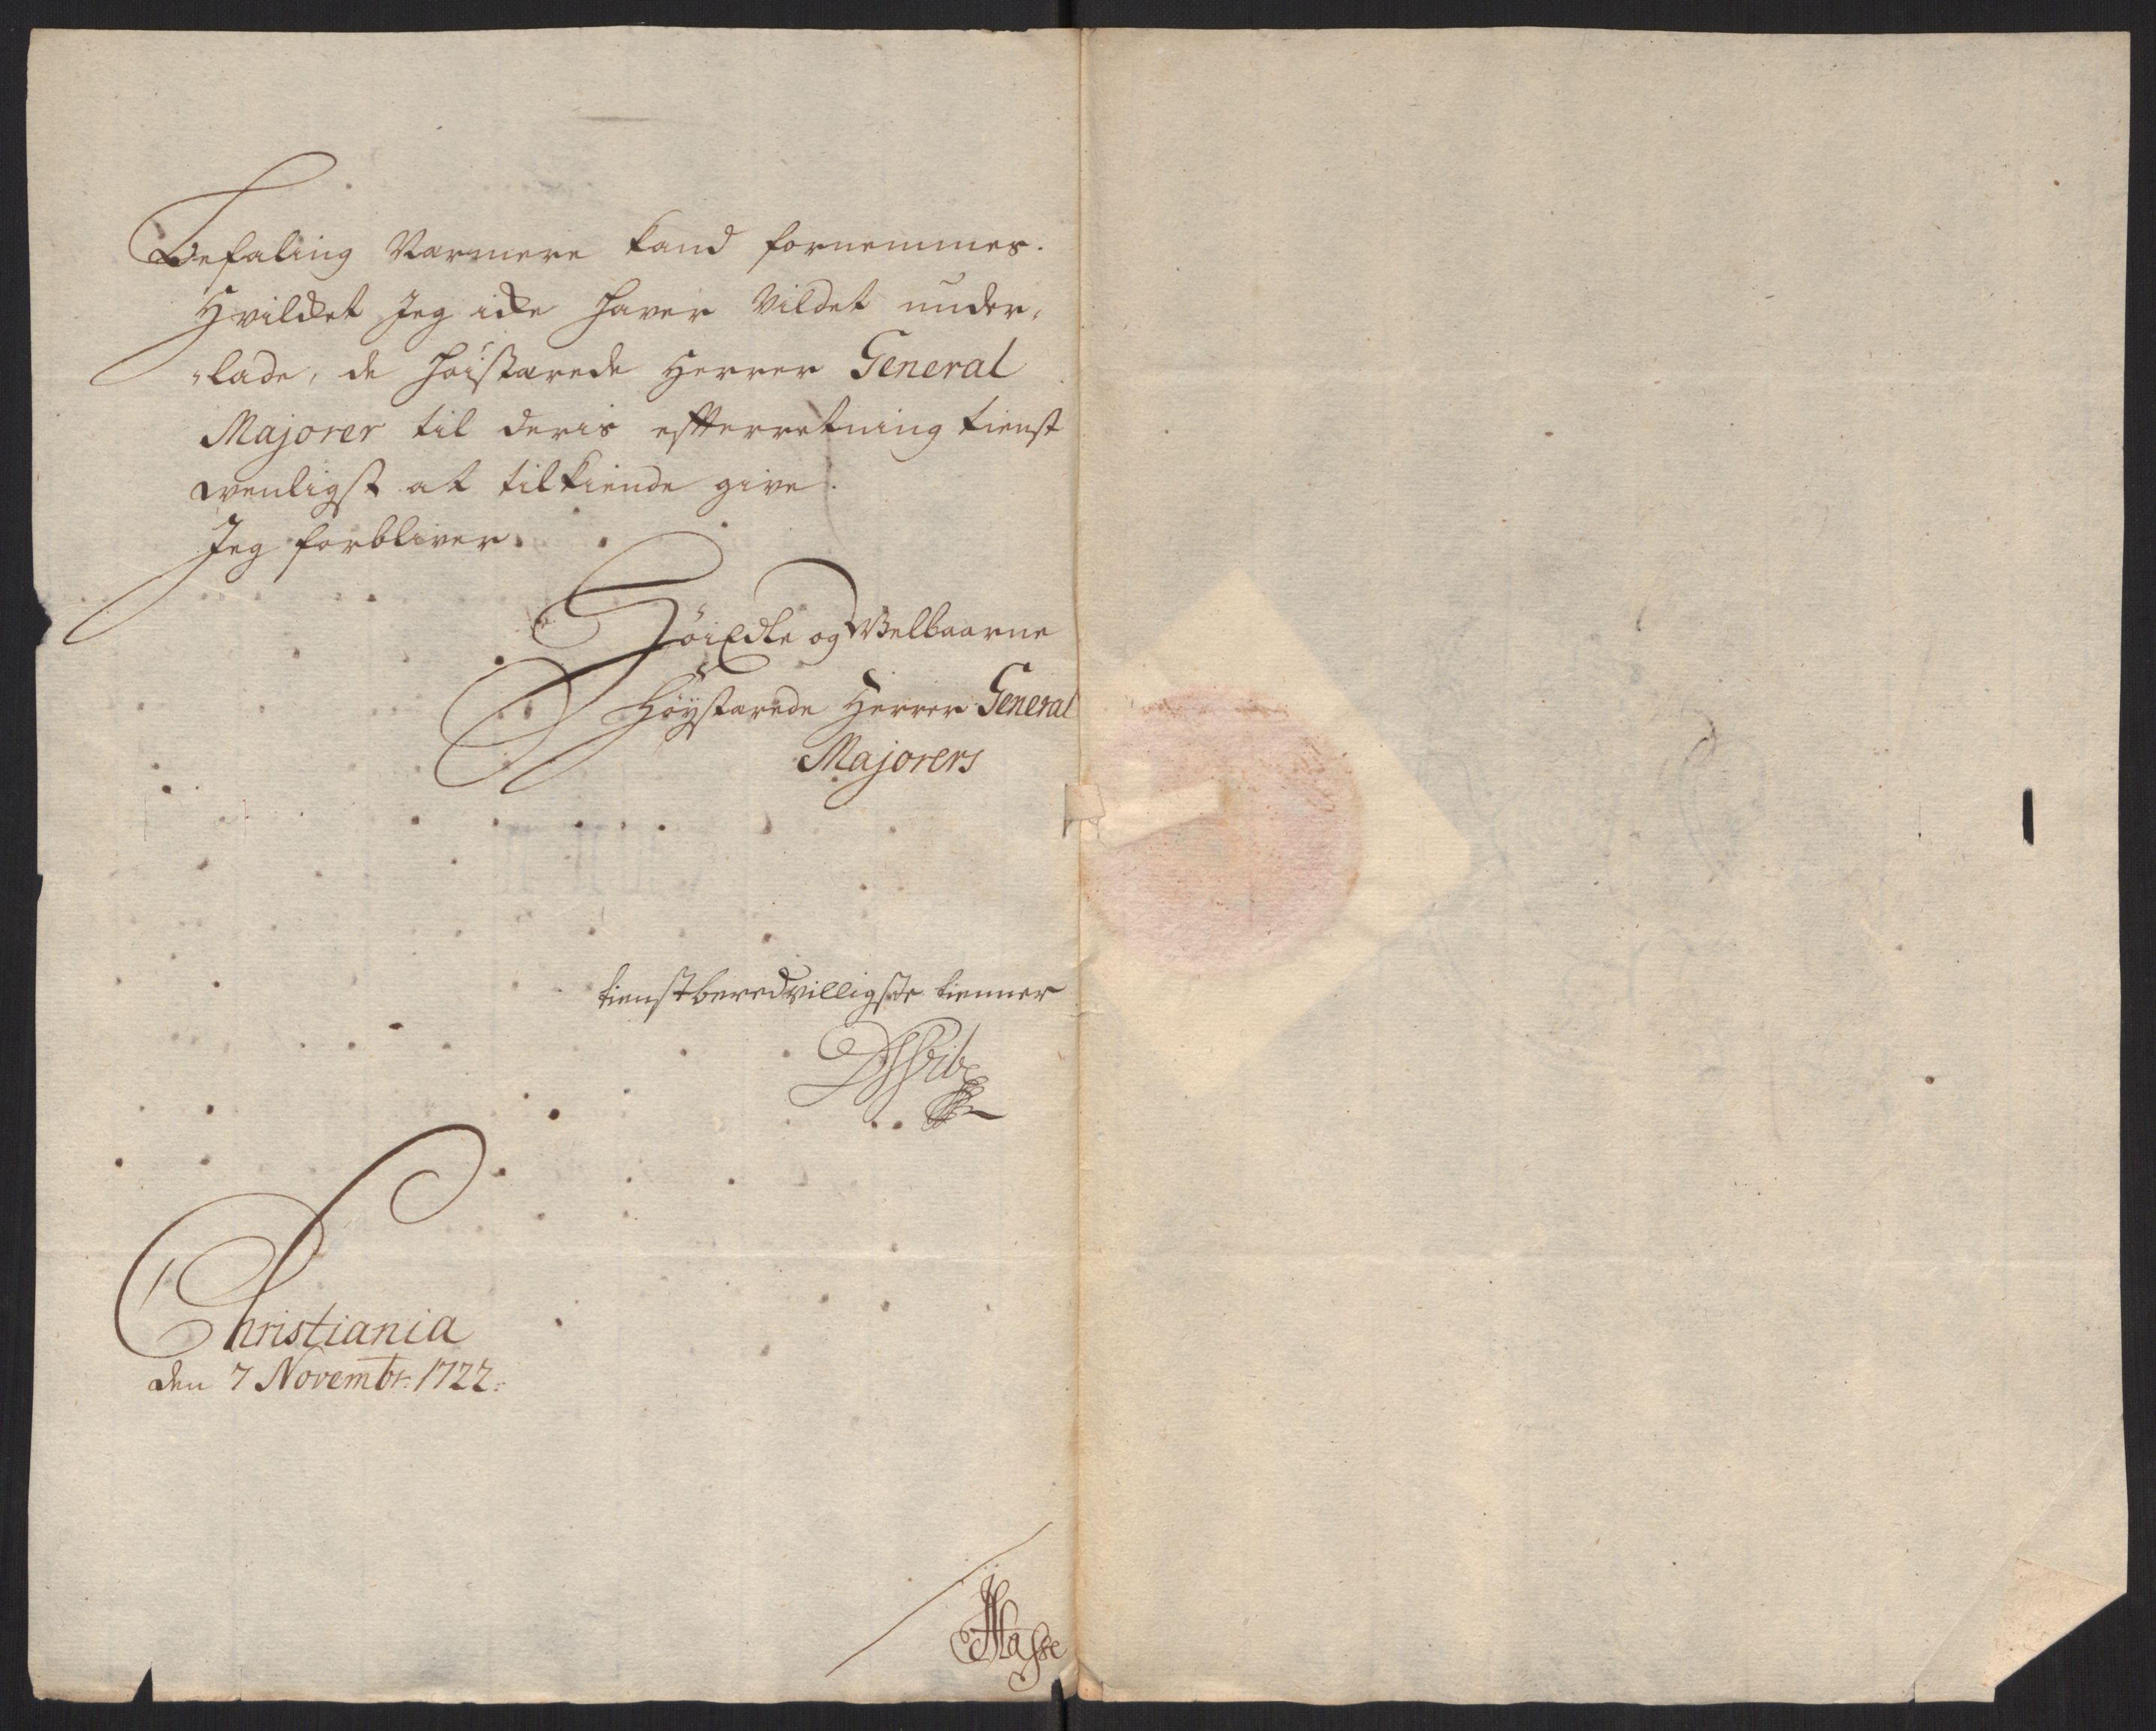 Befaling Narmere kand fornemmes.
Hvilcket Jeg icke haver Vildet under,
„lade, de höistærede Herrer General
Majorer til deris efterretning tienst
venligst at tilkiende give.
Jeg forbliver
HöiEdle og Velbaarne
Höystærede Herrer General
Majorers
tienstberedvilligste tienner
Christiania
den 7 Novembr: 1722: